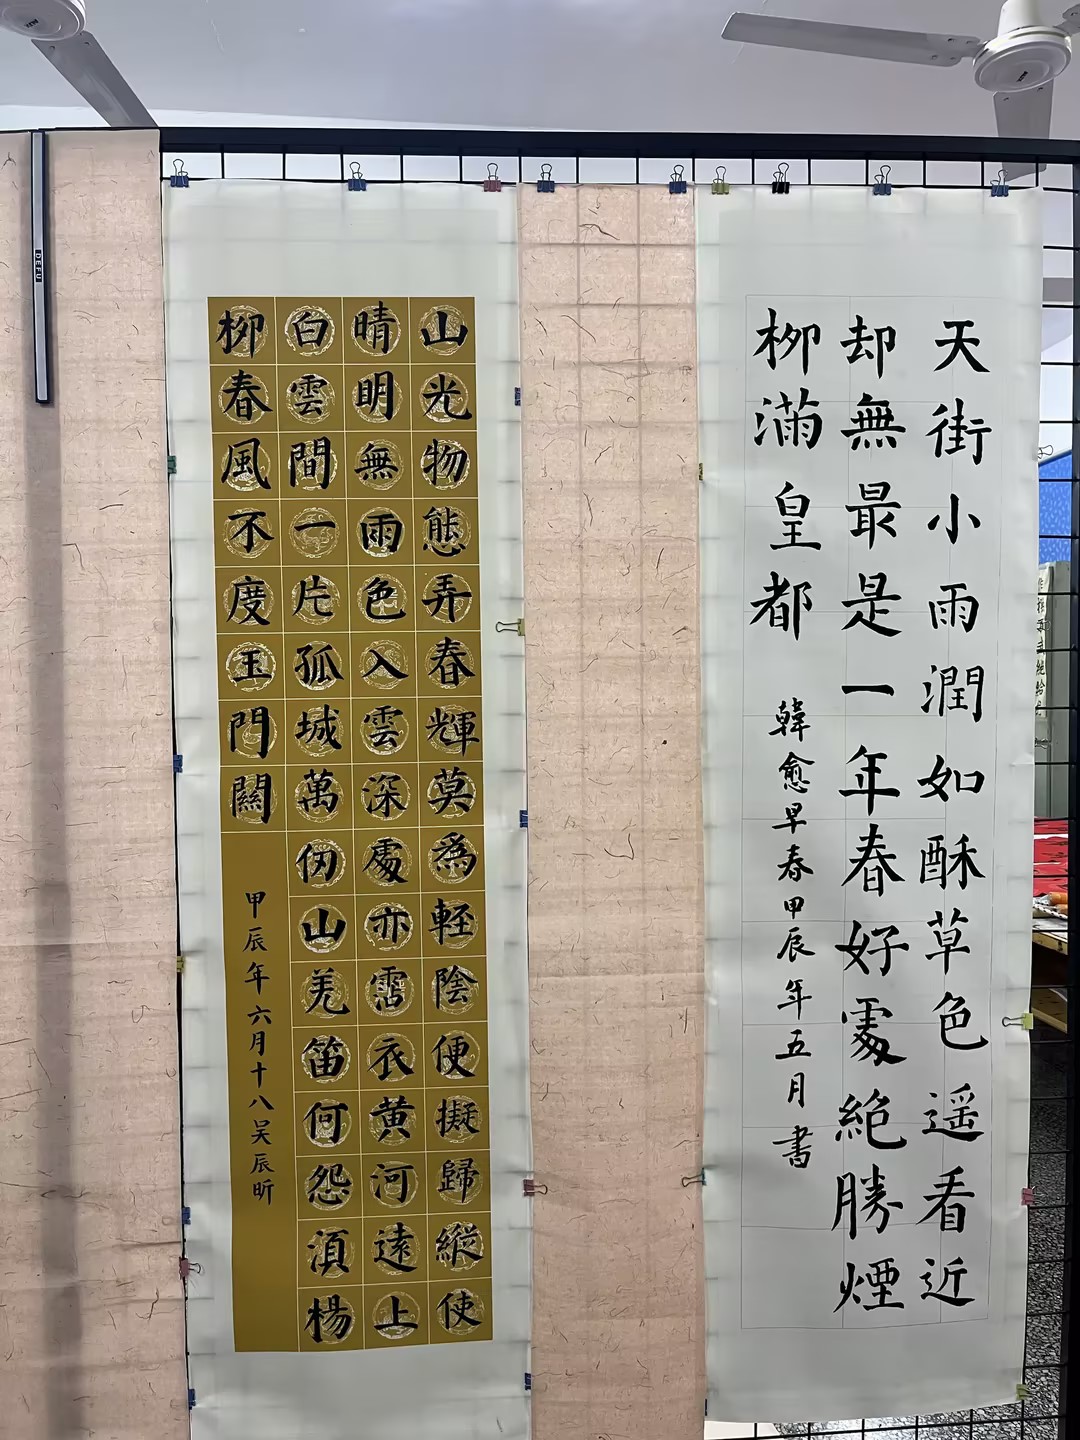 天街小雨潤如酥草色遥看近
却無最是一年春好處絶勝煙
柳滿皇都
韓愈早春甲辰年五月書
山光物態弄春輝莫爲軽陰便擬歸縱使
晴明無雨色入雲深處亦霑衣黄河遠上
白雲間一片孤城萬仞山羌笛何怨湏楊
柳春風不度玉門關
甲辰年六月十八吴辰昕
DEFU